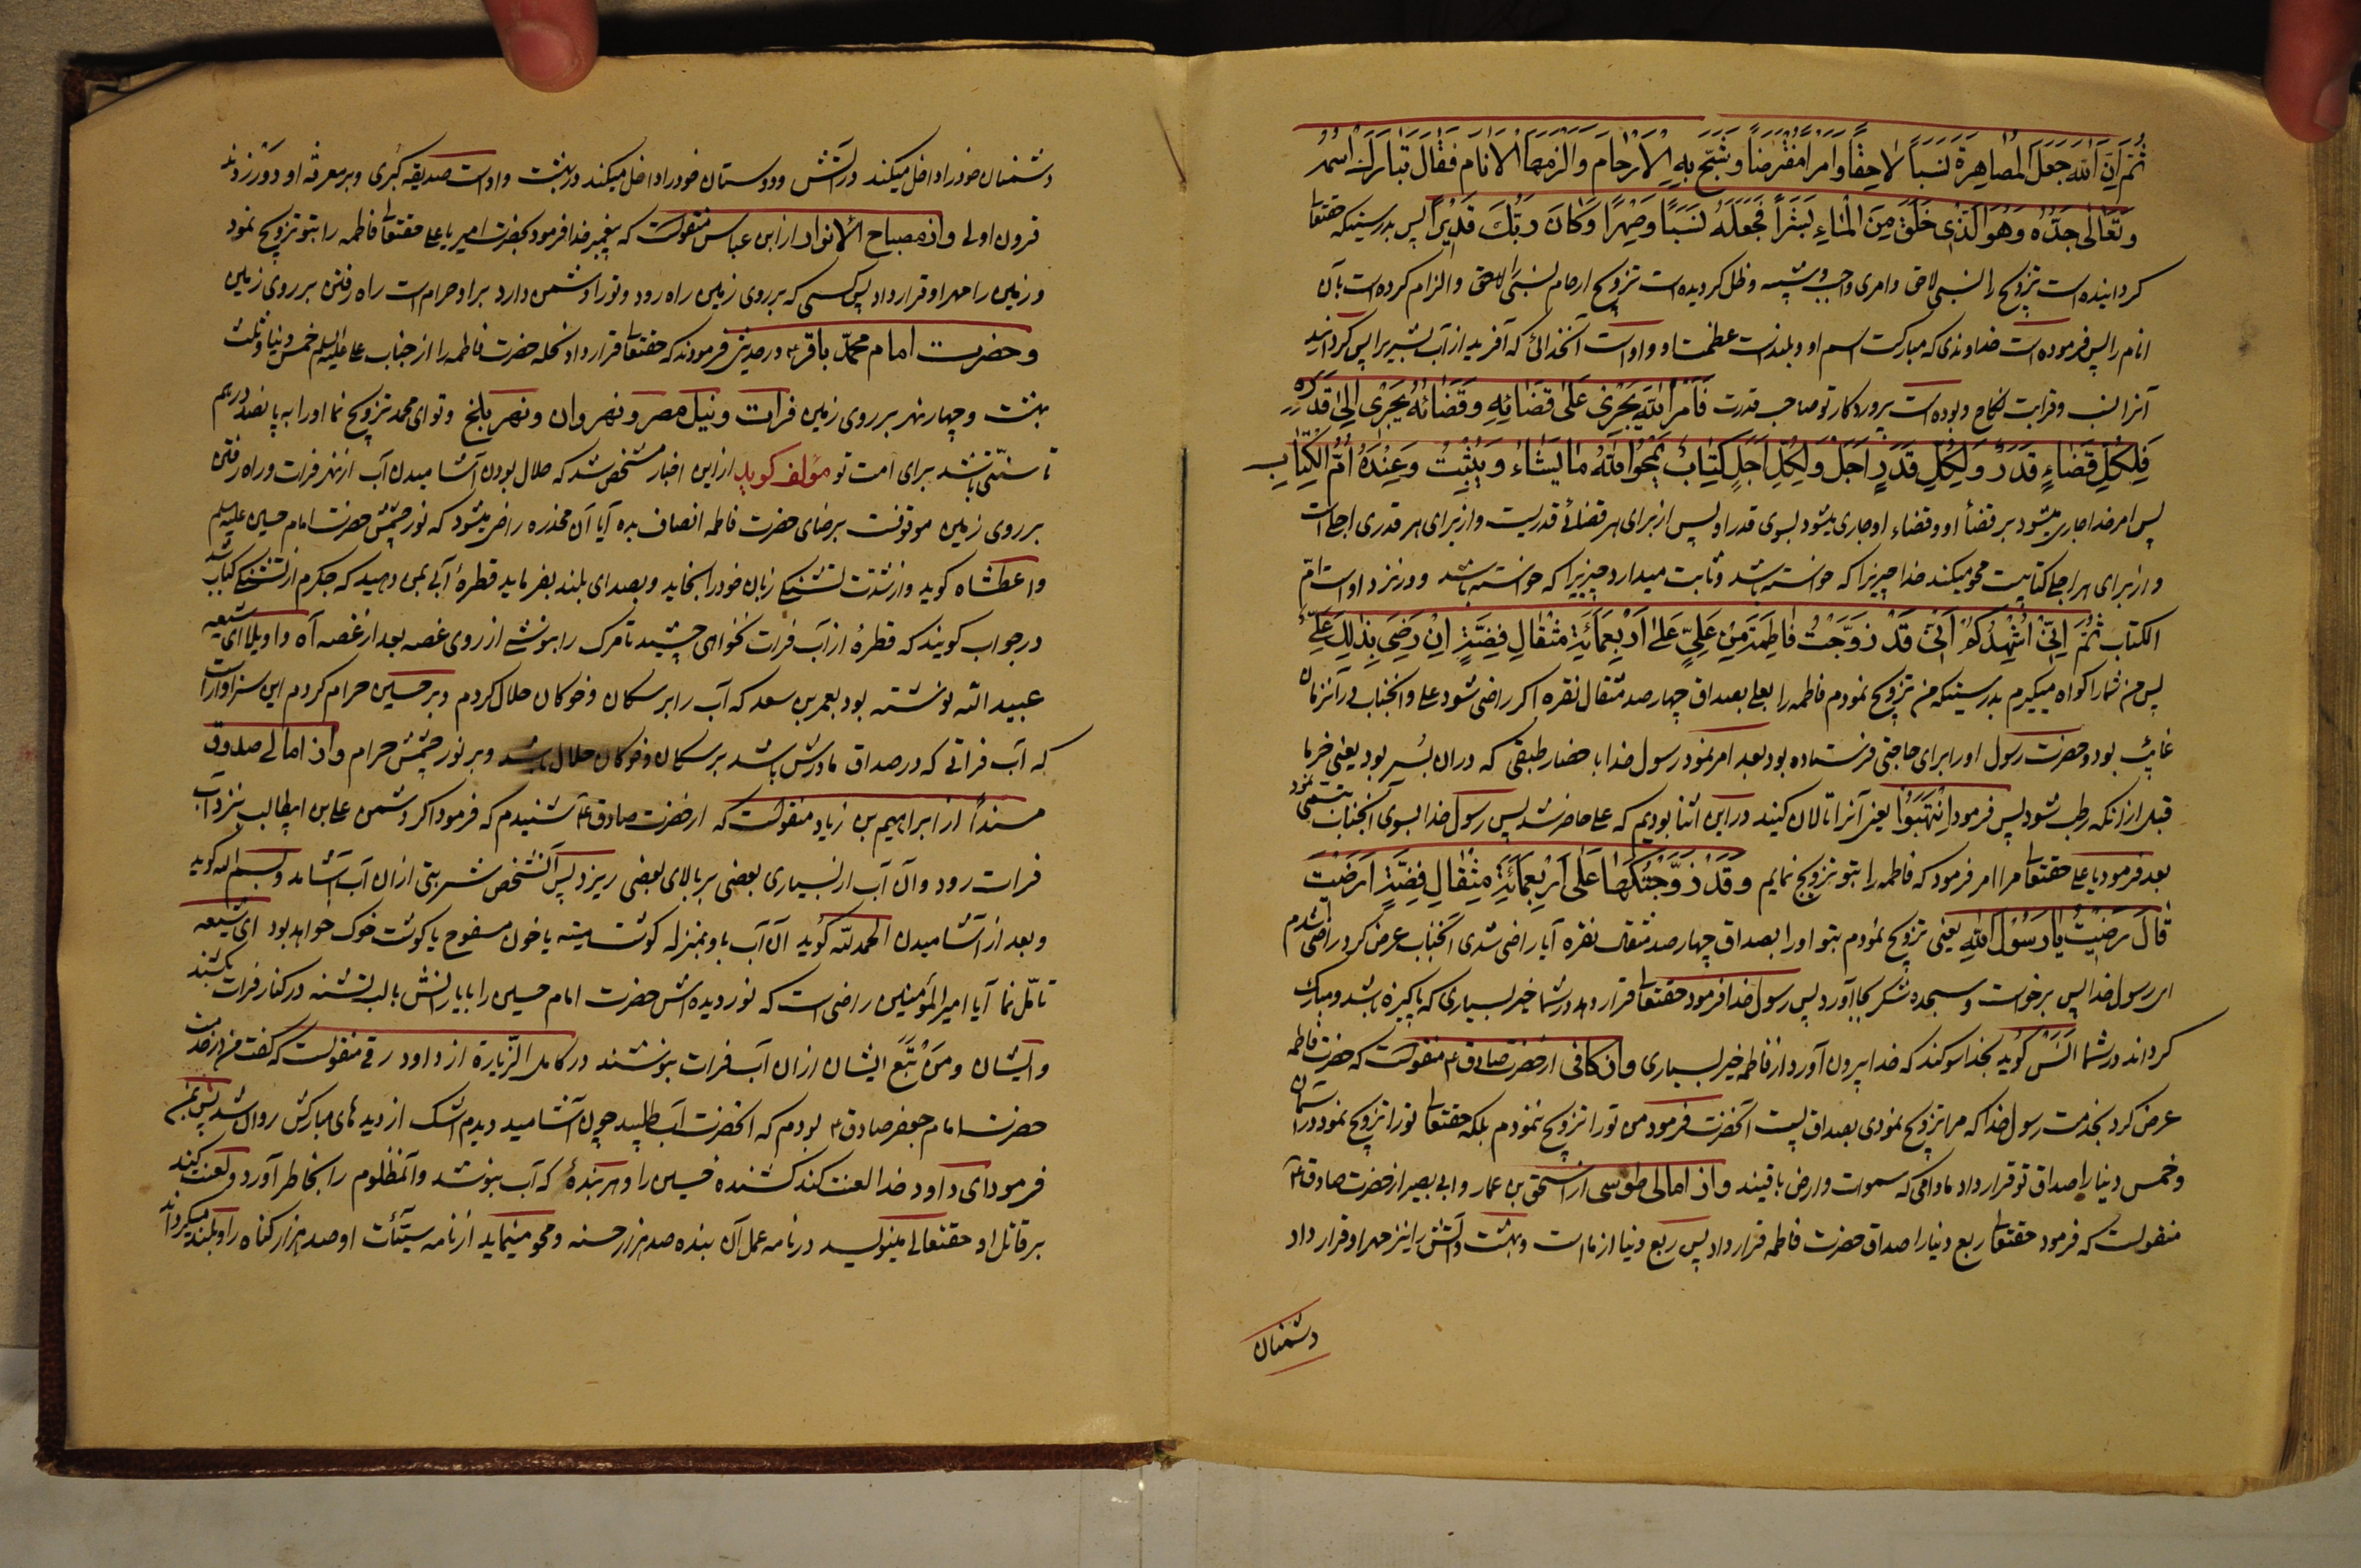 ثُمَّ اِنَّ اللّٰهَ جَعَلَ الْمُصاهِرَةَ نَسَباً لاحِقاً وَاَمْراً مُفْتَرَضاً وَشَبَّحَ بِهِ الْاَرْحامَ وَاَلْزَمَهَا الْاَنامَ فَقالَ تَبارَكَ اسْمُهُ
وَتَعالىٰ جَدُّهُ وَهُوَ الَّذِى خَلَقَ مِنَ الْماءِ بَشَراً فَجَعَلَهُ نَسَباً وَصِهْراً وَكانَ رَبُّكَ قَدِيْراً پس بدرستیکه حقتعالی
کردانیده است تزویج را نسبی لاحق و امری واجب و داخل کردیده است تزویج ارحام بنسبی را لاحق و الزام کرده است بآن
انام را پس فرموده است خداوندی که مبارکست اسم او و بلند است عظمت او و او است آنخدائی که آفرید از آب بشریرا پس کردانید
آنرا نسب و قرابت نکاح و بوده است پروردکار تو صاحب قدرت فَاَمْرُ اللّٰهِ يَجْرِى عَلىٰ قَضائِهِ وَقَضائُهُ يَجْرِى اِلىٰ قَدَرِهِ
فَلِكُلِّ قَضاءٍ قَدَرٌ وَلِكُلِّ قَدَرٍ اَجَلٌ وَلِكُلِّ اَجَلٍ كِتابٌ يَمْحُوا اللّٰهُ ما يَشاءُ وَيُثْبِتُ وَعِنْدَهُ اُمُّ الْكِتابِ
پس امر خدا جاری میشود بر قضاء او و قضاء او جاری میشود بسوی قدر او پس از برای هر قضائی قدریست و از برای هر قدری اجلی است
و از برای هر اجلی کتابیست محو میکند خدا چیزیرا که خواسته باشد و ثابت میدارد چیزیرا که خواسته باشد و در نزد او است امّ
الکتاب ثُمَّ اِنِّى اُشْهِدُكُمْ اَنِّى قَدْ زَوَّجْتُ فاطِمَةَ مِنْ عَلِيٍّ عَلىٰ اَرْبَعِمِائَةِ مِثْقالِ فِضَّةٍ اِنْ رَضِىَ بِذٰلِكَ عَلِىٌّ
پس من شما را کواه میکیرم بدرستیکه من تزویج نمودم فاطمه را بعلی بصداق چهار صد مثقال نقره اکر راضی شود علی و انجناب در آنزمان
غائب بود و حضرت رسول او را برای حاجتی فرستاده بود بعد امر نمود رسول خدا با حضار طبقی که در ان بُسر بود یعنی خرما
قبل از انکه رطب شود پس فرمود اِنْتَهِبُوْا یعنی آنرا تالان کنید در این اثنا بودیم که علی حاضر شد پس رسول خدا بسوی آنجناب تبسّمی نمود
بعد فرمود یا علی حقتعالی مرا امر فرمود که فاطمه را بتو تزویج نمایم وَقَدْ زَوَّجْتُكَها عَلىٰ اَرْبَعِمِائَةِ مِثْقالِ فِضَّةٍ اَرَضِيْتَ
قالَ رَضِيْتُ يا رَسُوْلَ اللّٰهِ یعنی تزویج نمودم بتو او را بصداق چهار صد مثقال نقره آیا راضی شدی آنجناب عرض کرد راضی شدم
ای رسول خدا پس برخواست و سجده شکر بجا آورد پس رسول خدا فرمود حقتعالی قرار دهد در شما خیر بسیاری که پاکیزه باشد و مبارک
کرداند در شما انس کوید بخدا سوکند که خدا بیرون آورد از فاطمه خیر بسیاری و از کافی از حضرت صادق ع منقولست که حضرت فاطمه
عرض کرد بخدمت رسول خدا که مرا تزویج نمودی بصداق پست آنحضرت فرمود من تو را تزویج ننمودم بلکه حقتعالی تو را تزویج نمود در آسمان
و خمس دنیا را صداق تو قرار داد مادامی که سموات و ارض باقیند و از امالی طوسی از اسحق بن عمار و ابی بصیر از حضرت صادق ع
منقولست که فرمود حقتعالی ربع دنیا را صداق حضرت فاطمه قرار داد پس ربع دنیا از ما است و بهشت و آتش را نیز مهر او قرار داد
دشمنان
دشمنان خود را داخل میکند در آتش و دوستان خود را داخل میکند در بهشت و او است صدیقه کبری و بر معرفة او دور زدند
قرون اولی و از مصباح الانوار از ابن عباس منقولست که پیغمبر خدا فرمود بحضرت امیر یا علی حقتعالی فاطمه را بتو تزویج نمود
و زمین را مهر او قرار داد پس کسی که بر روی زمین راه رود و تو را دشمن دارد بر او حرام است راه رفتن بر روی زمین
و حضرت امام محمّد باقر ع در حدیثی فرمودند که حقتعالی قرار داد نحله حضرت فاطمه را از جناب علی علیه السلم خمس دنیا و ثلث
بهشت و چهار نهر بر روی زمین فرات و نیل مصر و نهروان و نهر بلخ و تو ای محمد تزویج نما او را به پانصد درهم
تا سنّتی باشد برای امت تو مؤلف کوید از این اخبار مشخص شد که حلال بودن آشامیدن آب از نهر فرات و راه رفتن
بر روی زمین موقوفست برضای حضرت فاطمه انصاف بده آیا آن مخدره راضی میشود که نور چشمش حضرت امام حسین علیه السلم
واعطشاه کوید و از شدت تشنکی زبان خود را بخاید و بصدای بلند بفرماید قطرهٔ آبی بمن دهید که جکرم از تشنکی کباب شد
در جواب کویند که قطرهٔ از آب فرات نخواهی چشید تا مرک را بنوشی از روی غصه بعد از غصه آه و اویلا ای شیعه
عبید الله نوشته بود بعمر بن سعد که آب را بر سکان و خوکان حلال کردم و بر حسین حرام کردم این سزاوار است
که آب فراتی که در صداق مادرش باشد بر سکان و خوکان حلال باشد و بر نور چشمش حرام و از امالی صدوق
مسنداً از ابراهیم بن زیاد منقولست که از حضرت صادق ع شنیدم که فرمود اکر دشمن علی بن ابیطالب بنزد آب
فرات رود و آن آب از بسیاری بعضی بر بالای بعضی ریزد پس آنشخص شربتی از ان آب آشامد و بسم الله کوید
و بعد از آشامیدن الحمد لله کوید آن آب باو بمنزله کوشت میته یا خون مسفوح یا کوشت خوک خواهد بود ای شیعه
تأمّل نما آیا امیر المؤمنین راضی است که نور دیده اش حضرت امام حسین را با یارانش با لب تشنه در کنار فرات بکشند
و ایشان و مَنْ تَبَعِ ایشان از ان آب فرات بنوشند در کامل الزّیارة از داود رقی منقولست که کفت من در خدمت
حضرت امام جعفر صادق ع بودم که انحضرت آب طلبید چون آشامید دیدم اشک از دیدهای مبارکش روان شد پس بمن
فرمود ای داود خدا لعنت کند کشنده حسین را و هر بندهٔ که آب بنوشد و آنمظلوم را بخاطر آورد و لعنت کند
بر قاتل او حقتعالی مینویسد در نامه عمل آن بنده صد هزار حسنه و محو مینماید از نامه سیّئات او صد هزار کناه را و بلند میکرداند